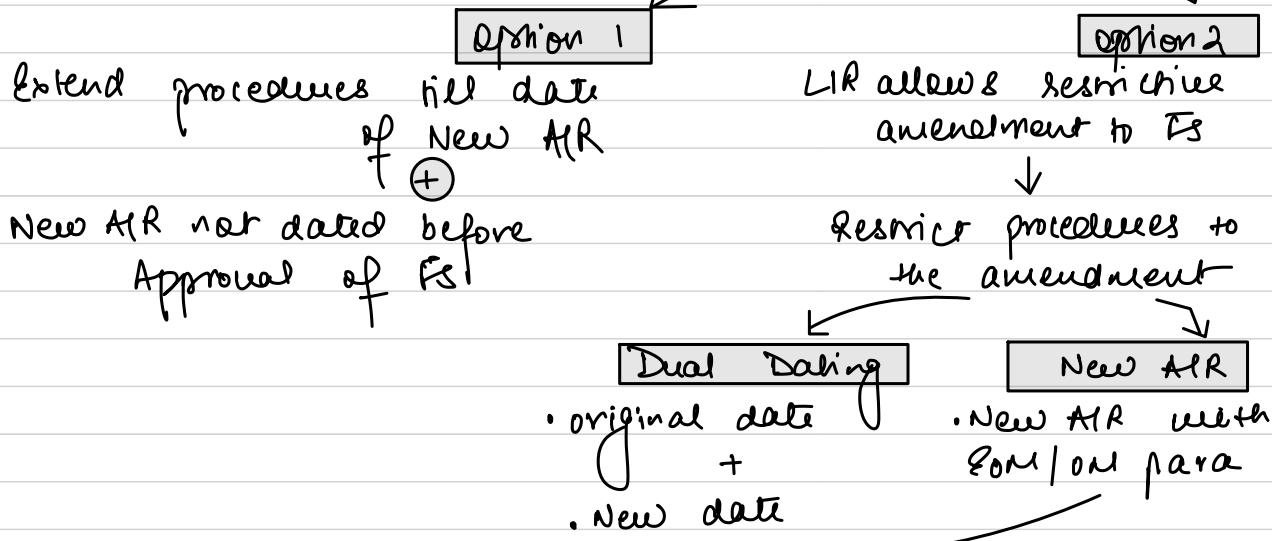 Option 1
Extend procedures till date
of New A/R
+
New A/R not dated before
Approval of FS
Option 2
L/R allows restrictive
amendment to FS
↓
Restrict procedures to
the amendment
Dual Dating
• original date
+
• New date
New A/R
• New A/R with
EOM/OM para